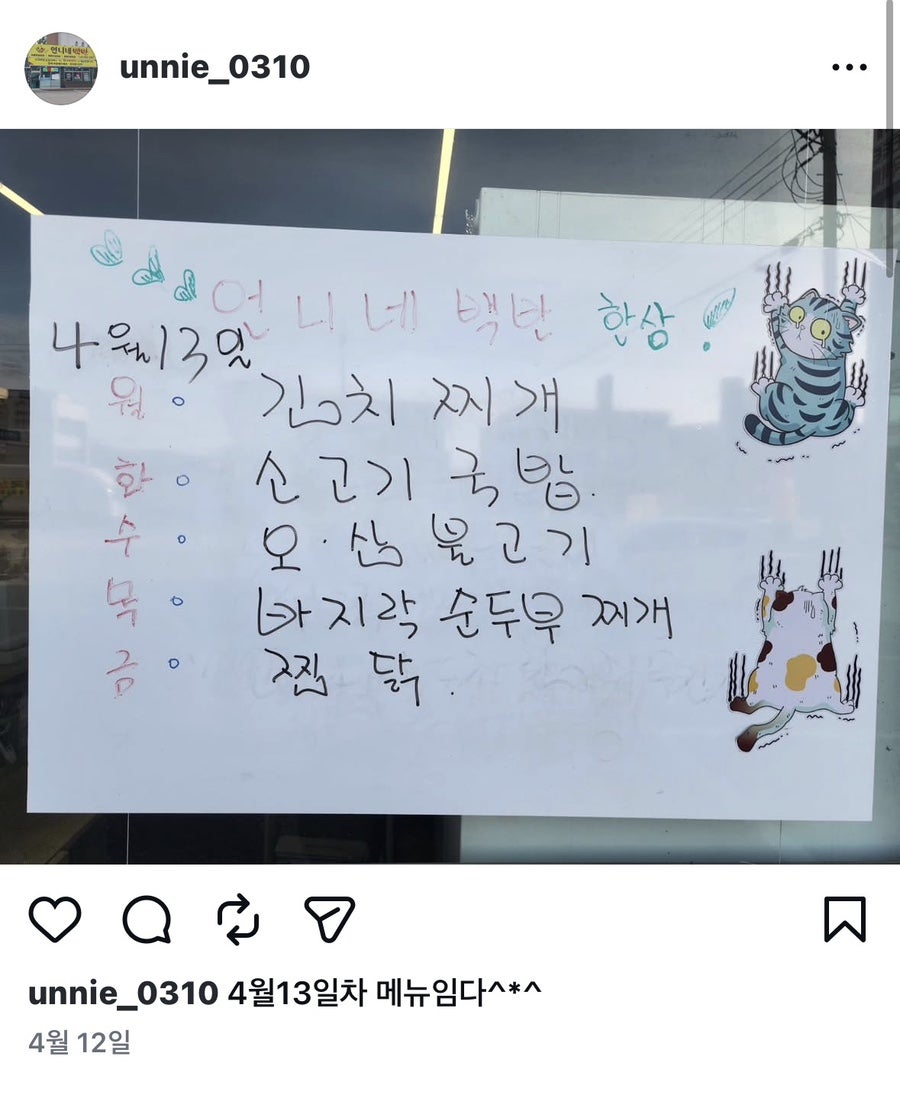 언니네백반
unnie_0310
언니네 백반 한상
4월13일
월 김치찌개
화 소고기 국밥.
수 오·삼 불고기
목 바지락 순두부 찌개
금 찜닭.
unnie_0310 4월13일차 메뉴임다^*^
4월 12일